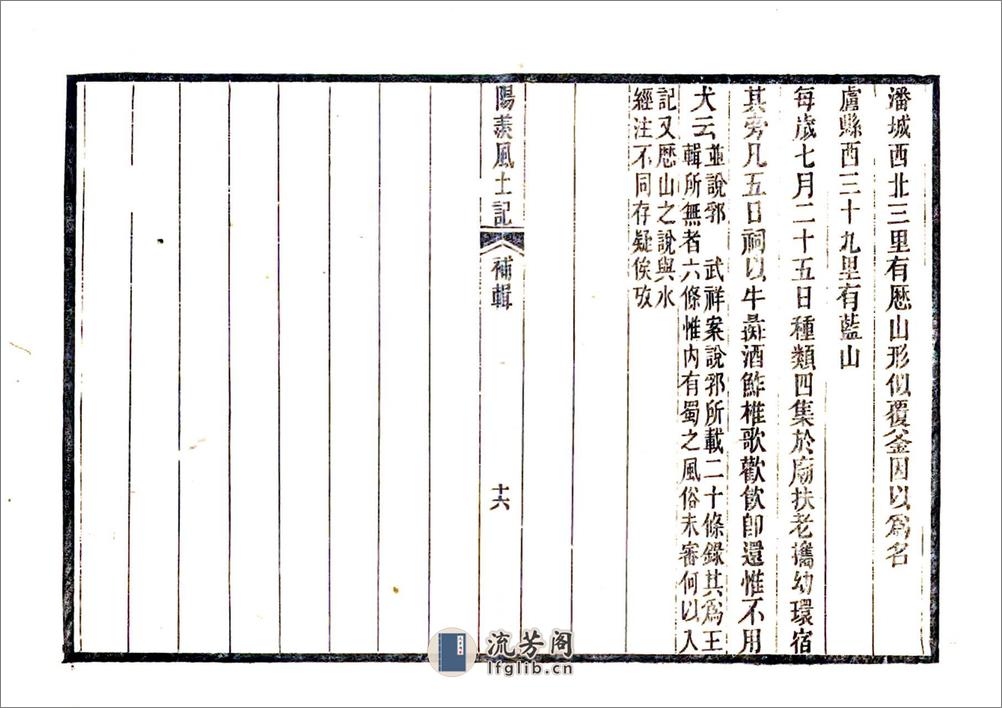 潘城西北三里有歴山形似覆釜因以爲名
盧縣西三十九里有藍山
每歲七月二十五日種類四集於廟扶老攜幼環宿
其旁凡五日祠以牛彘酒鮓椎歌歡飲卽還惟不用
犬云並說郛　武祥案說郛所載二十條錄其爲王
輯所無者六條惟內有蜀之風俗未審何以入
記又歴山之說與水
經注不同存疑俟攷
陽羨風土記
補輯
十六
流芳阁
lfglib.cn